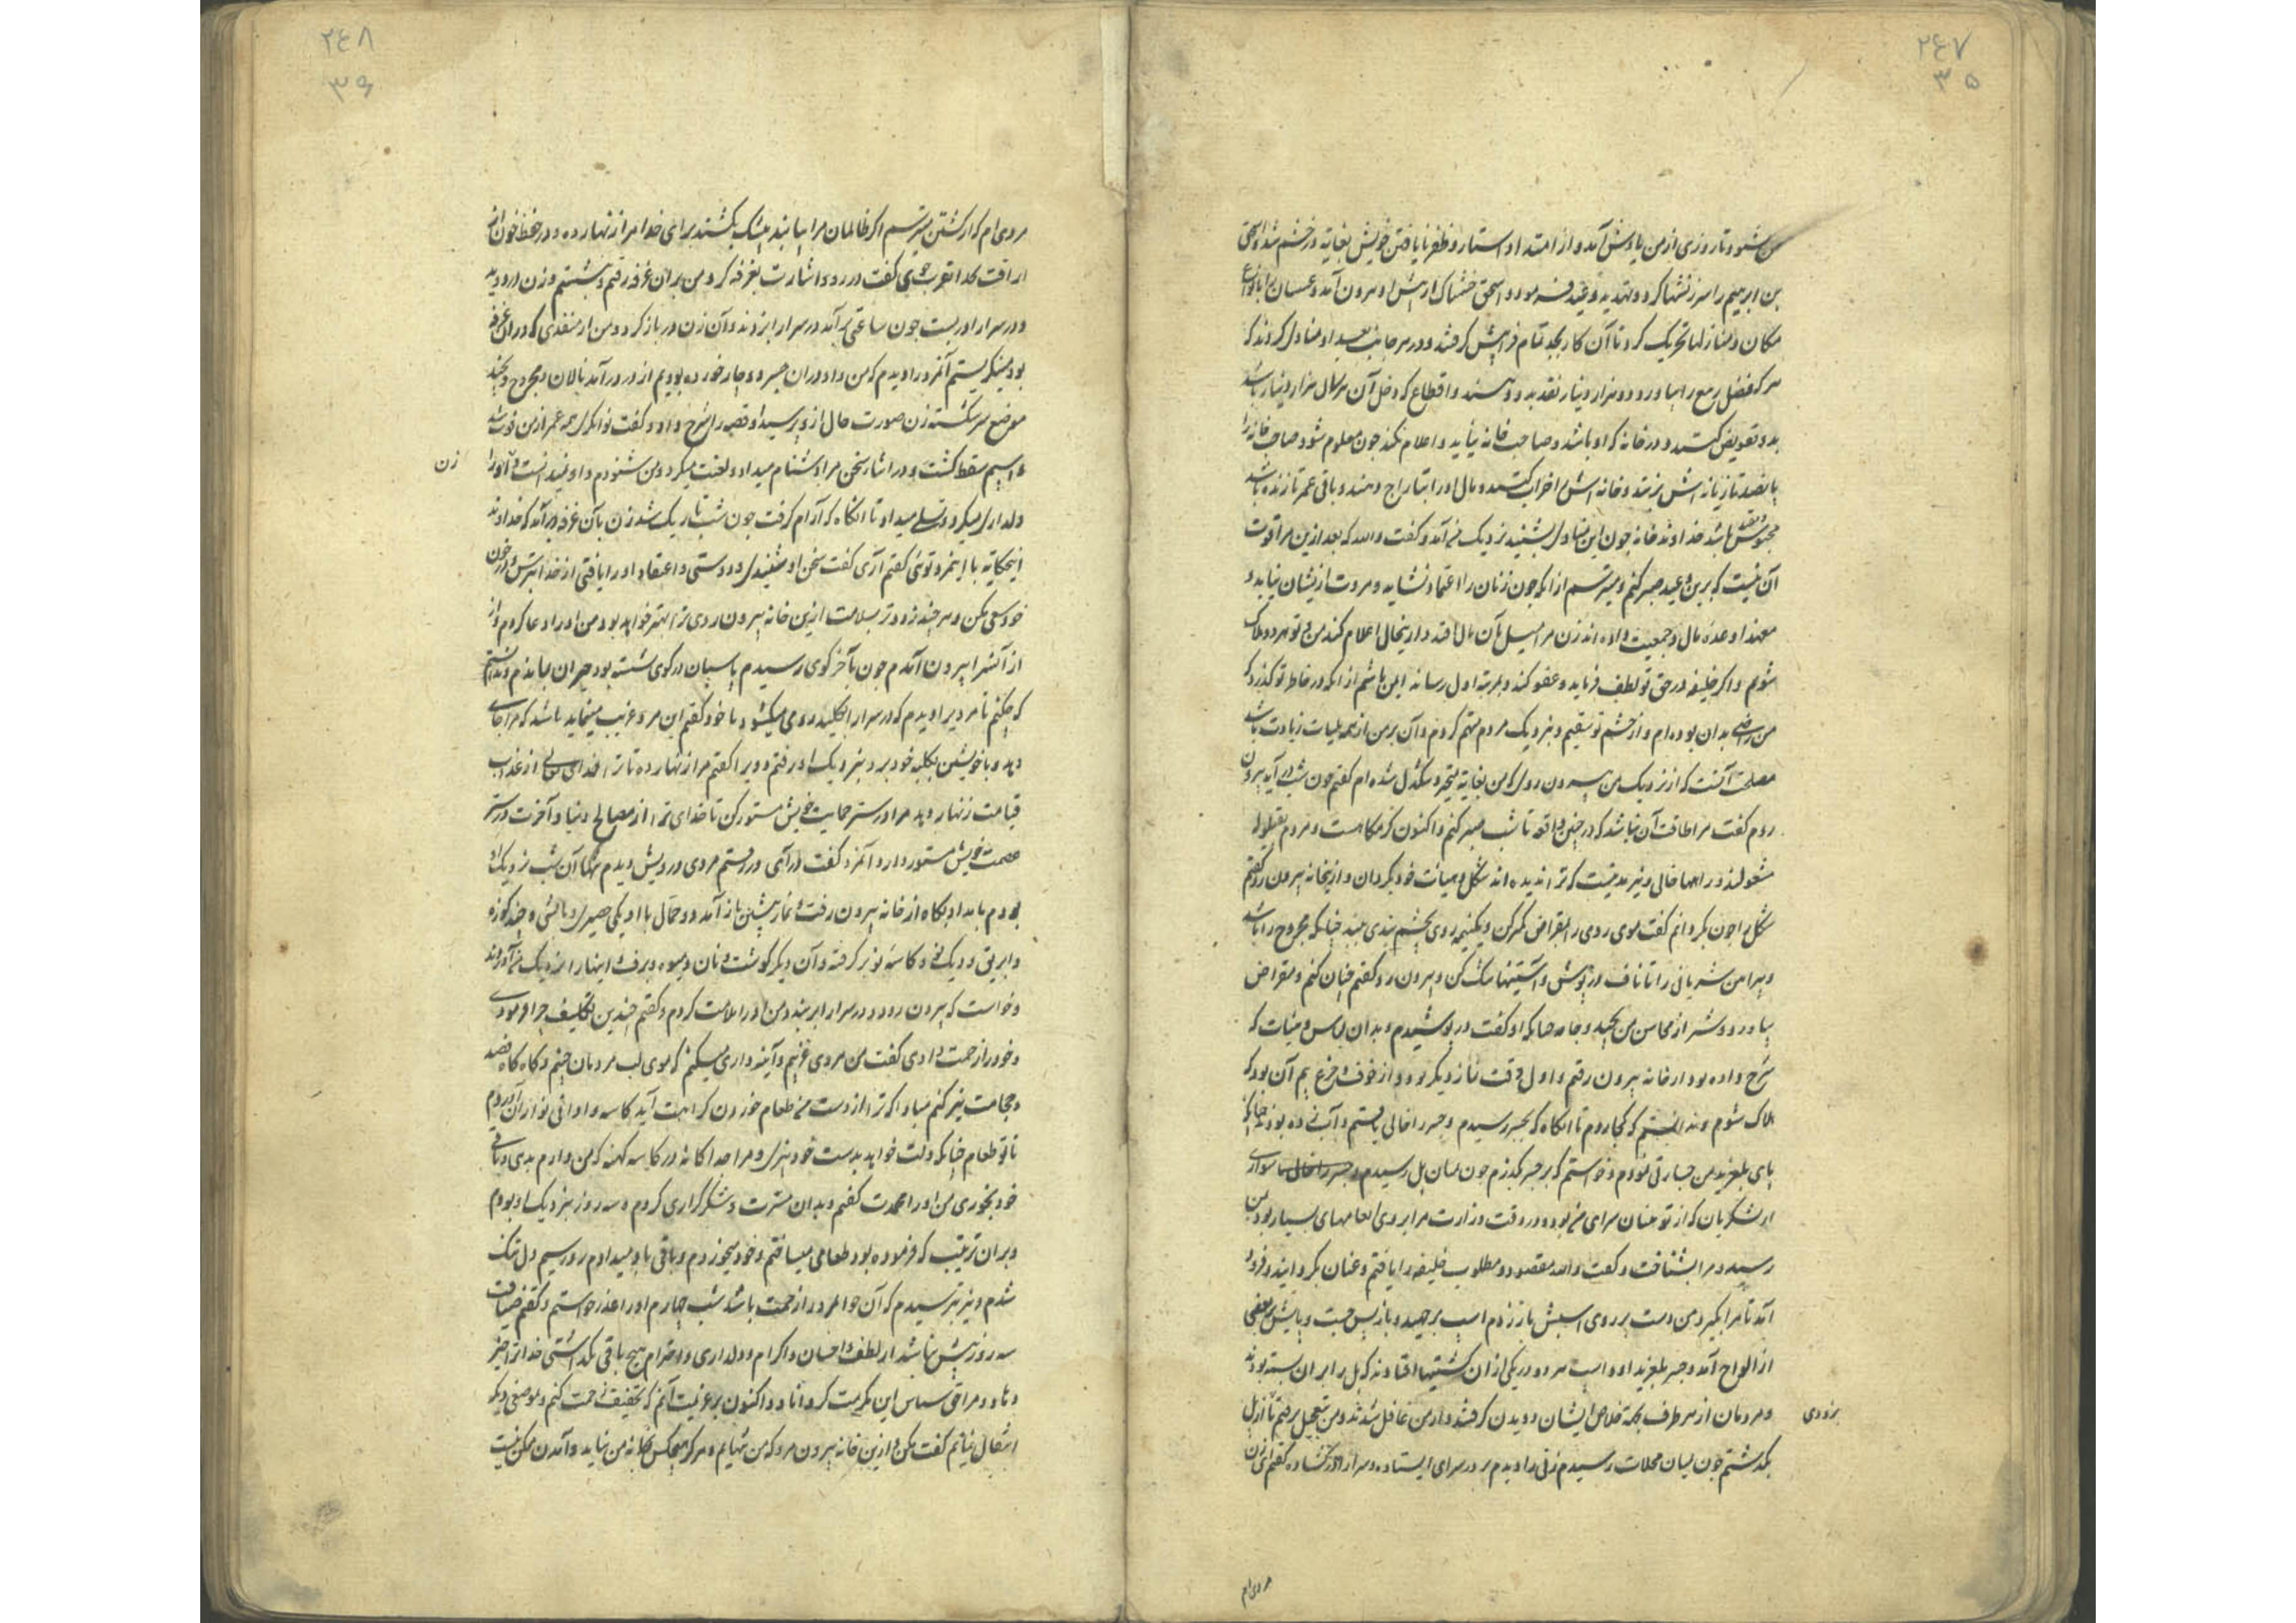 ۲۴۷
۳۵
می‌شنود تا روزی از من یادش آمد و از امتداد استتار و ظفر نایافتن خویش بغایة در خشم شد و اسحق
بن ابرهیم را سرزنشها کرد و تهدید و وعید فرمود و اسحق خشمناک از پیش او بیرون آمد و عسسان را بانواع
مکان و منازلها تحریک کرد تا آن کار بجد تمام فراپیش گرفتند و در هر جانب بغداد منادی کردند که
هر که فضل ربیع را بیاورد دو هزار دینار نقد بدو دهند و اقطاع که دخل آن هر سال هزار دینار باشد
بدو تفویض کنند و در خانه که او باشد و صاحب خانه نیاید و اعلام نکند چون معلوم شود صاحب خانه را
پانصد تازیانه‌اش بزنند و خانه‌اش را خراب کنند و مال او را بتاراج دهند و باقی عمر تا زنده باشد
محبوس باشد خداوند خانه چون این منادی بشنید نزدیک من آمد و گفت والله که بعد ازین مرا قوت
آن نیست که برین وعید صبر کنم و میترسم از آنکه چون زنان را اعتماد نشاید و مروت ازیشان نیاید و
معهذا وعده مال و جمعیت داده‌اند زن مرا میل بآن مال افتد و ازینحال اعلام کند من و تو هر دو هلاک
شویم و اگر خلیفه در حق تو لطف فرماید و عفو کند و بمرتبه اول رساند ایمن باشم از آنکه در خاطر تو گذرد که
من راضی بدان بوده‌ام و از چشم تو بیفتم و بنزدیک مردم متهم گردم و آن بر من از همه بلیات زیادت باشد
مصلحت آنست که از نزدیک من بیرون روی که من بغایة متحیر و تنگدل شده‌ام گفتم چون شب درآید بیرون
روم گفت مرا طاقت آن نباشد که در چنین واقعه تا شب صبر کنم و اکنون گرمگاهست و مردم بقیلوله
مشغولند و راهها خالی و نیز مدتیست که ترا ندیده‌اند شکل و هیات خود بگردان و ازینخانه بیرون رو گفتم
شکل را چون بگردانم گفت موی روی را بمقراض کمتر کن و یکنیمه روی بچشم بندی ببند چنانکه مجروح را باشد
و پیراهن شربانی را تا ناف درپوش و آستینها تنگ کن و بیرون رو گفتم چنان کنم و مقراض
بیاورد و بیشتر از محاسن من بچید و جامه چنانکه او گفت درپوشیدم و بدان لباس و هیات که
شرح داده بود از خانه بیرون رفتم و اول وقت نماز دیگر بود و از خوف و فزع بیم آن بود که
هلاک شوم و ندانستم که کجا روم تا آنگاه که بجسر رسیدم و جسر را خالی یافتم و آب زده بودند چنانکه
پای بلغزید من جسارتی نمودم و خواستم که بر جسر بگذرم چون بمیان پل رسیدم سواری
از لشکریان که از نوبتیان سرای من بود و در وقت وزارت مرا بر وی انعامهای بسیار بود بمن
رسید و مرا بشناخت و گفت والله مقصود و مطلوب خلیفه را یافتم و عنان بگردانید و فرود
آمد تا مرا بگیرد من دست بر روی اسبش باز زدم اسب برجهید و بازپس جست و پایش بر بعضی
از الواح آمد و جسر بلغزید او و اسب هر دو در یکی از آن کشتیها افتادند که پل را بر آن بسته بودند
و مردمان از هر طرف بجهة خلاص ایشان دویدن گرفتند و از من غافل شدند و من بتعجیل برفتم تا از پل
بزودی
بگذشتم چون بمیان محلات رسیدم زنی را دیدم بر در سرای ایستاده و سرا را در گشاده گفتم ای زن
مردی‌ام
۲۴۸
۳۶
مردی‌ام که از کشتن میترسم اگر ظالمان مرا بیابند بیشک بکشند برای خدا مرا زنهار ده و در حفظ خون از
اراقت بخدا تقرب جوی گفت در رو و اشارت بغرفه کرد من بر آن غرفه رفتم و بنشستم و زن فرود آمد
و در سرا را دربست چون ساعتی برآمد در سرا را بزدند و آن زن در باز کرد و من از منفذی که در آن غرفه
بود مینگریستم آنمرد را دیدم که من و او در آن جسر دوچار خورده بودیم از در درآمد نالان و مجروح و چند
موضع سر شکسته زن صورت حال از وی پرسید او قصه را شرح داد و گفت توانگری همه عمر از من فوت شد
و اسبم سقط گشت و در اثنا سخن مرا دشنام میداد و لعنت میکرد و من می‌شنودم و او نمیدانست و آن او را
زن
دلداری میکرد و تسلی میداد تا آنگاه که آرام گرفت چون شب تاریک شد زن بآن غرفه برآمد که خداوند
اینحکایة با اینمرد توئی گفتم آری گفت سخن او شنیدی و دوستی و اعتقاد او را یافتی از خدا بترس و در خون
خود سعی مکن و هر چند زودتر بسلامت ازین خانه بیرون روی ترا بهتر خواهد بود من او را دعا کردم و از
از آنسرا بیرون آمدم چون بآخر کوی رسیدم پاسبان در کوی بسته بود حیران بماندم و ندانستم
که چکنم تا مردیرا دیدم که در سرا را بکلید رومی میگشود با خود گفتم این مرد غریب مینماید باشد که مرا جای
دهد و با خویشتن بکلبه خود برد بنزدیک او رفتم و ویرا گفتم مرا زنهار ده تا ترا خدای تعالی از عذاب
قیامت زنهار دهد مرا در ستر حمایت خویش مستور کن تا خدای ترا از مصالح دنیا و آخرت در ستر
عصمت خویش مستور دارد آنمرد گفت درآی در رفتم مردی درویش دیدم تنها آن شب نزدیک او
بودم بامداد بگاه از خانه بیرون رفت و نماز پیشین باز آمد و دو حمال با او یکی حصیری و بالشی و چند کوزه
و ابریق و دیگی و کاسه نو بر گرفته و آن دیگر گوشت و نان و میوه و برف و اینها را نزدیک من آوردند
و خواست که بیرون رود و در سرا را ببندد من او را ملامت کردم و گفتم چندین تکلیف چرا فرمودی
و خود را زحمت دادی گفت من مردی غریبم و آینه داری میکنم که موی لب مردمان چینم و گاه گاه فصد
و حجامت نیز کنم مبادا که ترا از دست من طعام خوردن کراهت آید کاسه و اوانی نو از آن آوردم
تا تو طعام چنانکه دلت خواهد بدست خود بپزی و مرا جداگانه در کاسه کهنه که من دارم بدهی و باقی
خود بخوری من او را محمدت گفتم و بدان مسرت و شکرگزاری کردم و سه روز بنزدیک او بودم
و بر آن ترتیب که فرموده بود طعامی میساختم و خود میخوردم و باقی باو میدادم روز سیم دل تنگ
شدم و نیز بترسیدم که آن جوانمرد را زحمت باشد شب چهارم او را عذر خواستم و گفتم ضیافت
سه روز بیش نباشد از لطف و احسان و اکرام و دلداری و احترام هیچ باقی نگذاشتی خدا ترا جزای خیر
دهاد و مرا حق سپاس این مکرمت گرداناد و اکنون بر عزیمت آنم که تخفیف زحمت کنم و بموضعی دیگر
انتقال نمایم گفت مکن و ازین خانه بیرون مرو که من تنهایم و هرگز هیچکس بخانه من نیاید و آمدن ممکن نیست